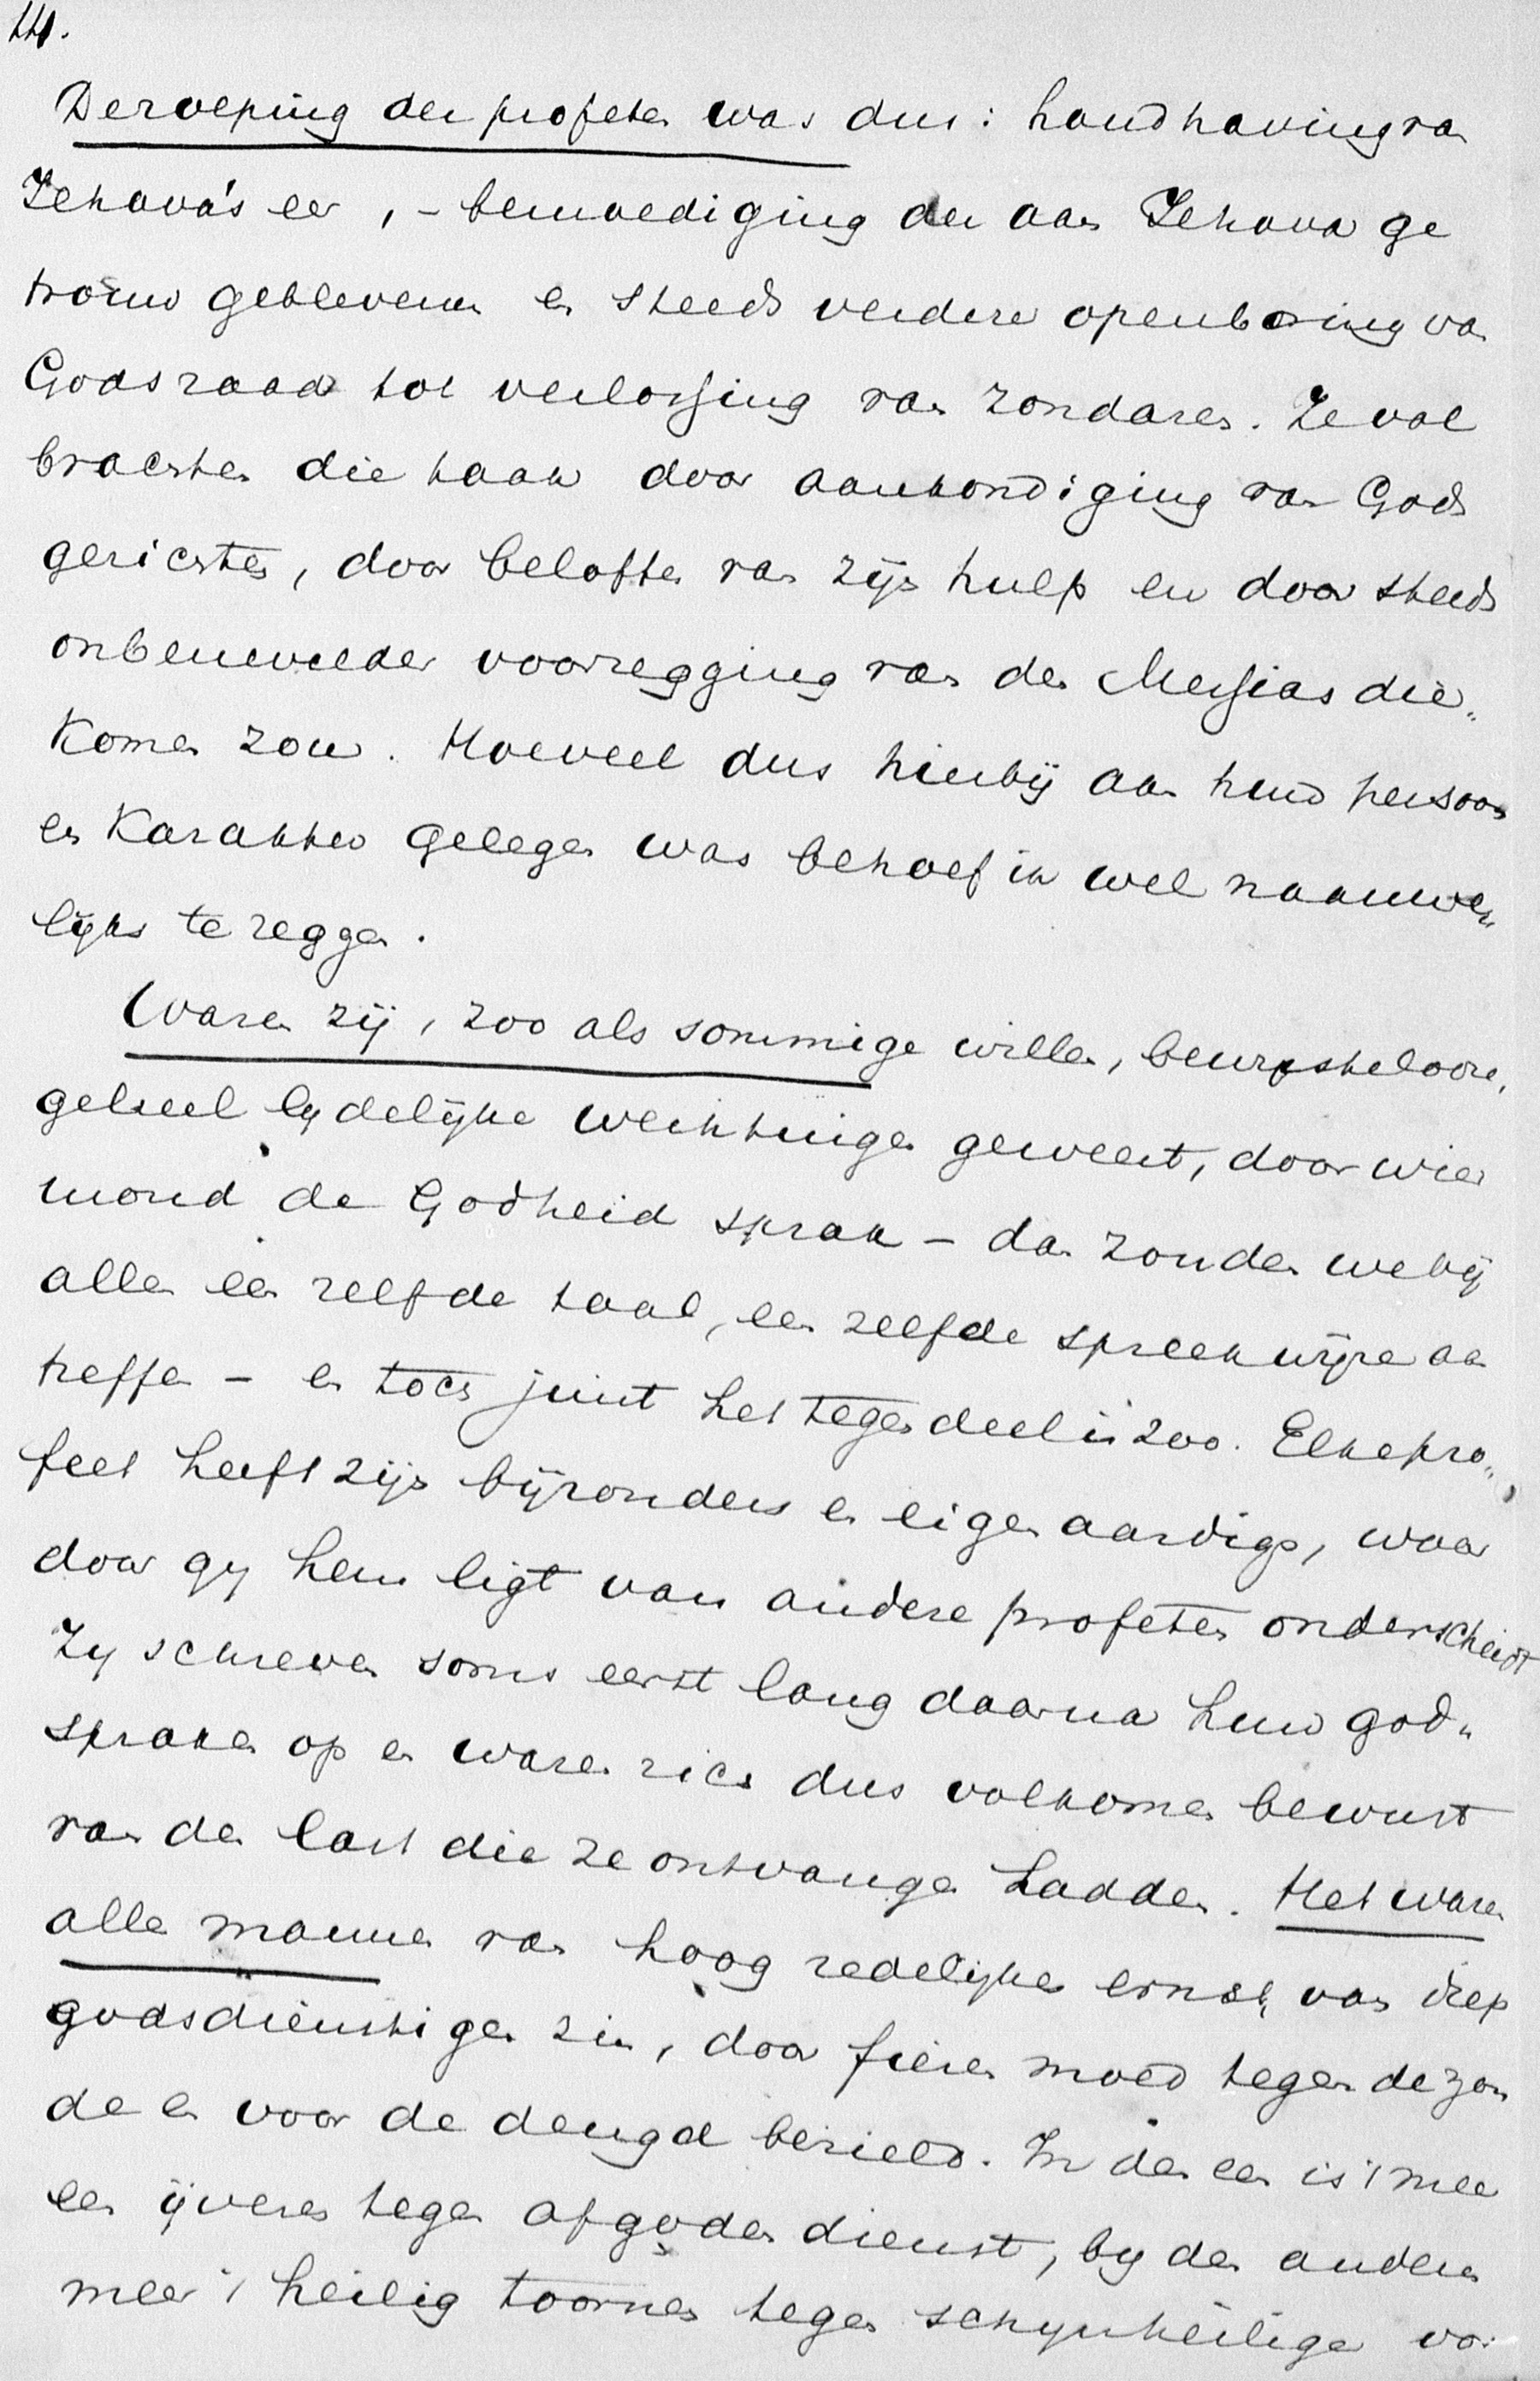 14.
De roeping der profeten was dus: handhaving van
Jehova's eer, - bemoediging der aan Jehova ge
trouw geblevenen en steeds verdere openbaring van
Gods raad tot verlossing van zondaren. Ze vol
brachten die taak door aankondiging van Gods
gerichten, door beloften van zijn hulp en door steeds
onbenevelder voorzegging van den Messias die„
komen zou. Hoeveel dus hierbij aan hun persoon
en karakter gelegen was behoef ik wel naauwe„
lijks te zeggen.
Waren zij, zoo als sommige willen, bewusteloore,
geheel lydelijke werktuigen geweest, door wier
mond de Godheid sprak - dan zouden we bij
allen een zelfde taal, een zelfde spreekwijze aan
treffen - en toch juist het tegendeel is zoo. Elke pro„
feet heeft zijn bijzonders en eigenaardigs, waar
door gy hem ligt van andere profeten onderscheidt
Zy schreven soms eerst lang daarna hun god„
spraken op en waren zich dus volkomen bewust
van den last die ze ontvangen hadden. Het waren
alle mannen van hoog zedelijken ernst, van diep
godsdienstigen zin, door fieren moed tegen de zon
de en voor de deugd bezield. In den een is 't mee
een ijveren tegen afgodendienst, by den anderen
meer 't heilig toornen tegen schynheilige vo